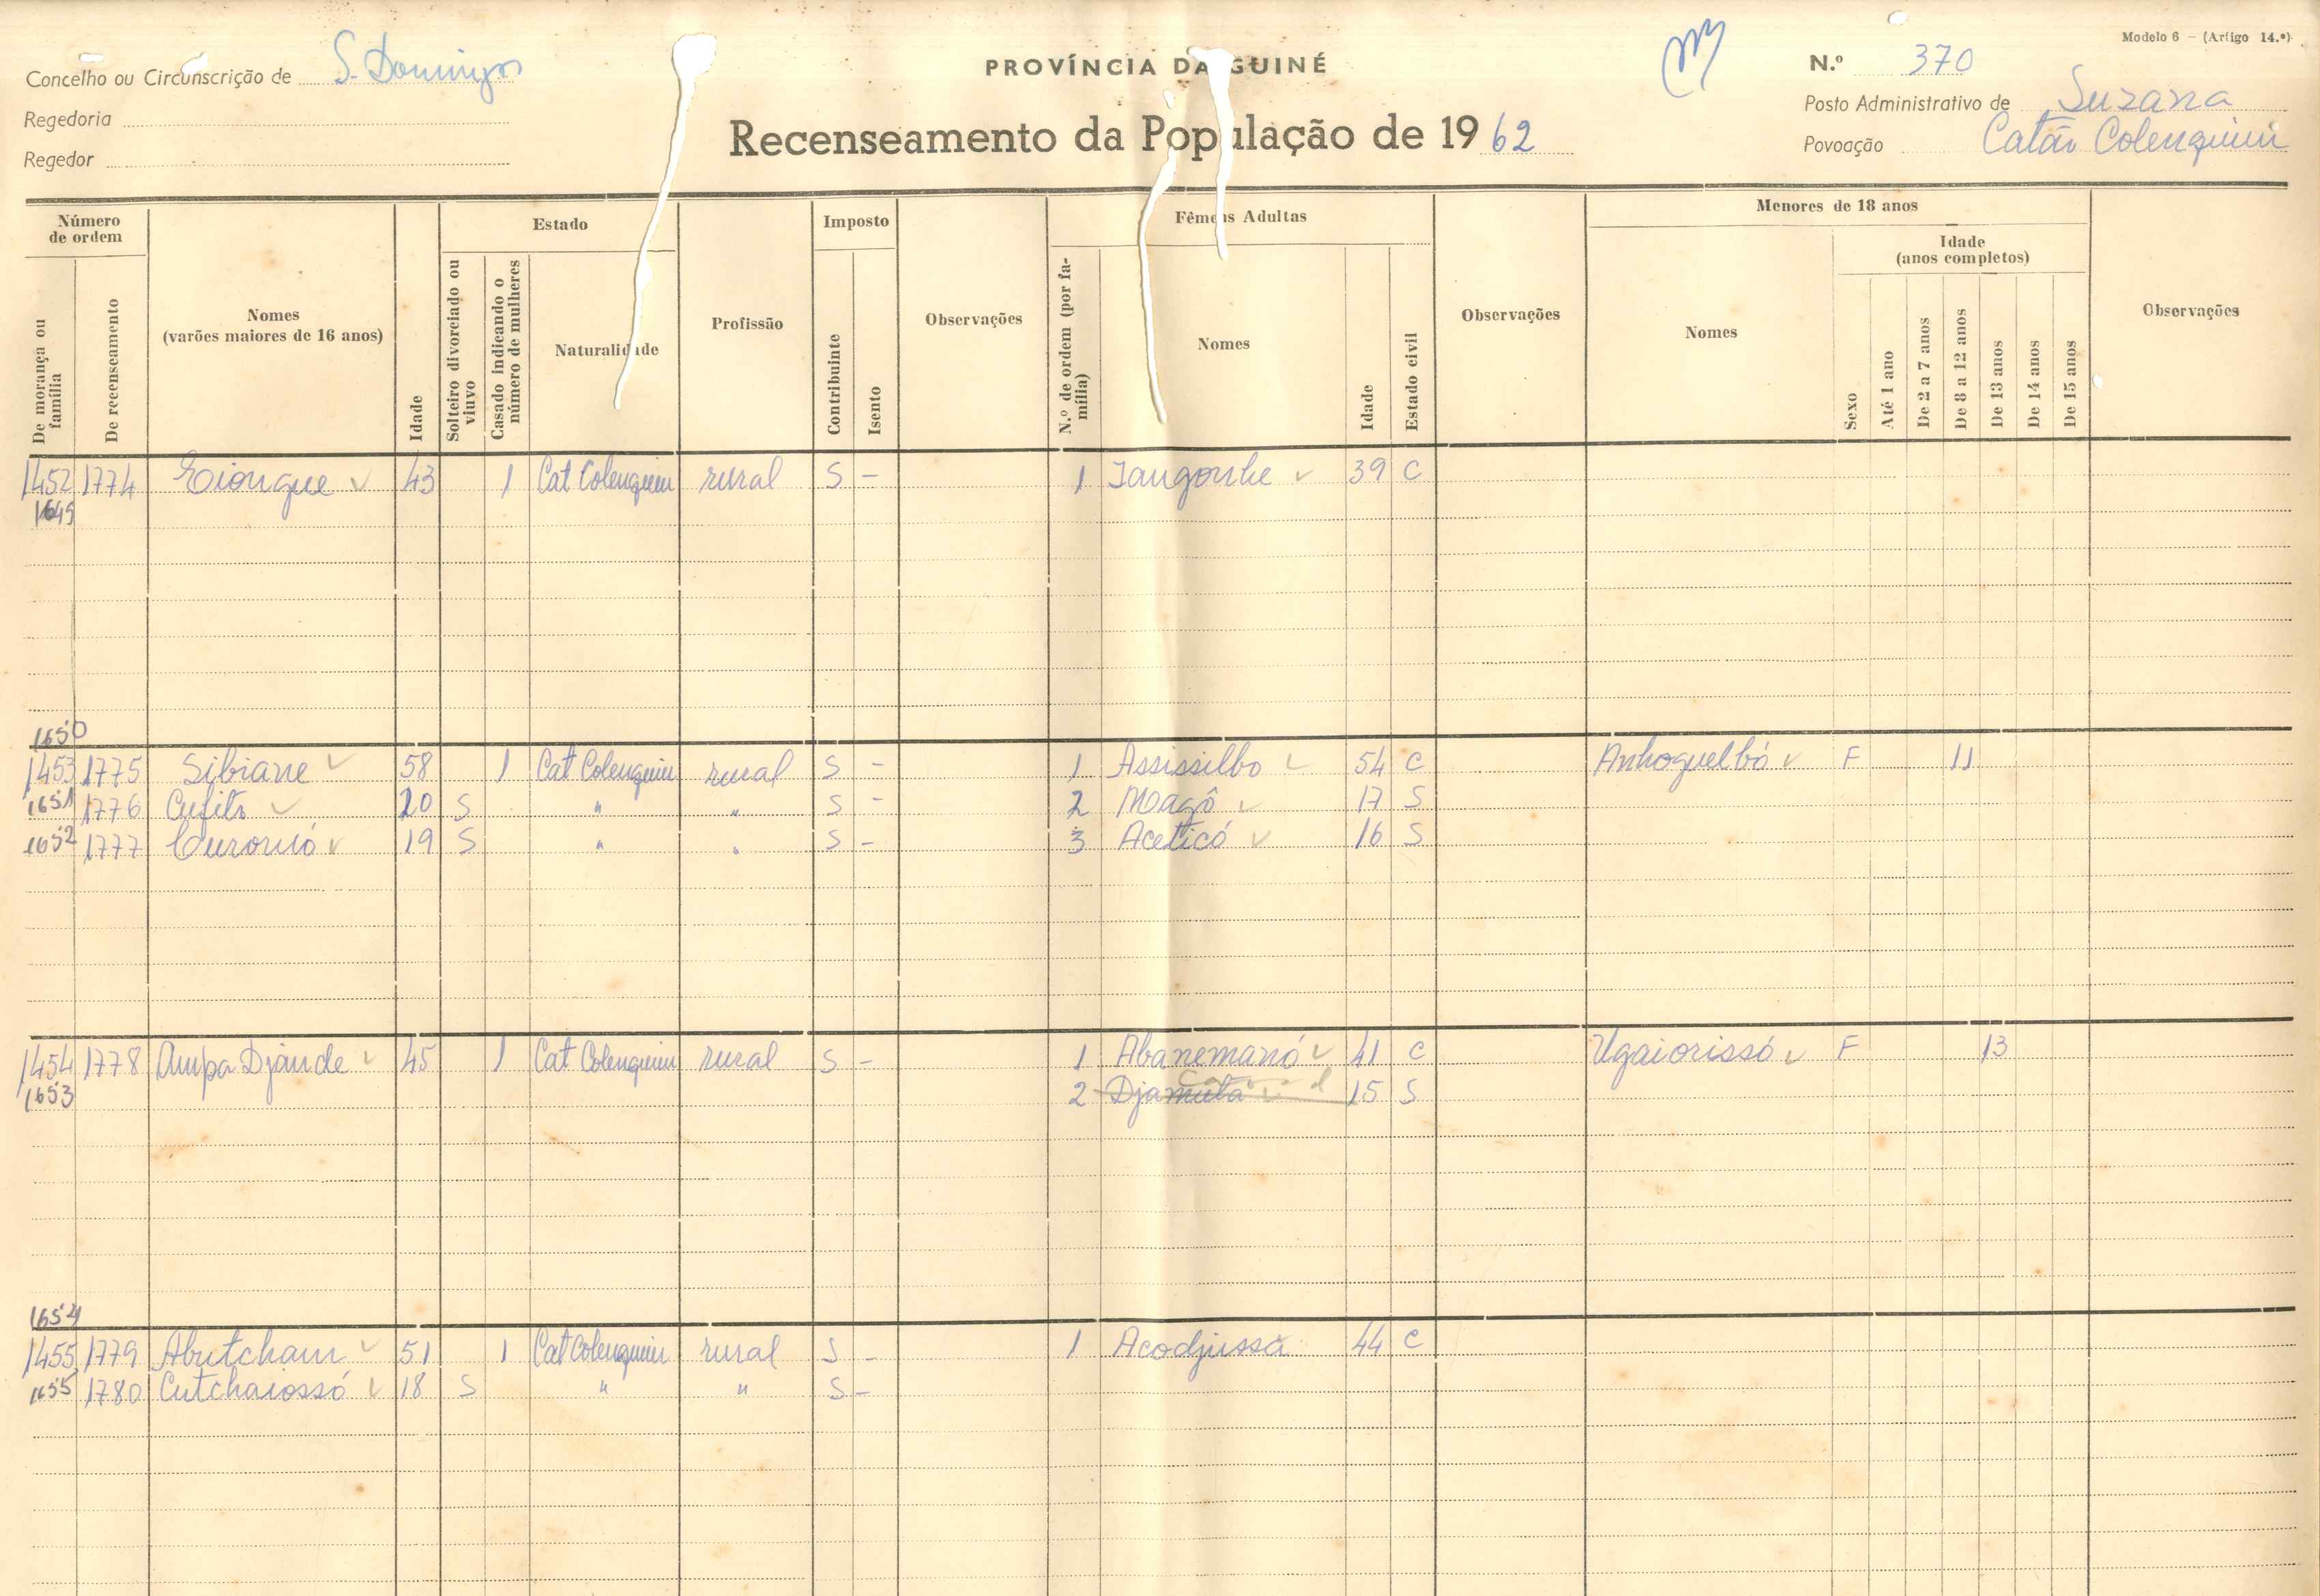 Modelo 6 — (Artigo 14.º)
Concelho ou Circunscrição de S. Domingos
PROVÍNCIA DA GUINÉ
N.º 370
Regedoria
Posto Administrativo de Suzana
Recenseamento da População de 1962
Regedor
Povoação Catão Colenquim
Número de ordem
Estado
Imposto
Fêmeas Adultas
Menores de 18 anos
De morança ou família
De recenseamento
Nomes (varões maiores de 16 anos)
Idade
Solteiro divorciado ou viuvo
Casado indicando o número de mulheres
Naturalidade
Profissão
Contribuinte
Isento
Observações
N.º de ordem (por família)
Nomes
Idade
Estado civil
Observações
Nomes
Sexo
Idade (anos completos)
Até 1 ano
De 2 a 7 anos
De 8 a 12 anos
De 13 anos
De 14 anos
De 15 anos
Observações
1452 1774 43 1 Cat Colenquim rural S - 1 39 C
1649
1650
1453 1775 Sibiane 58 1 Cat Colenquim rural S - 1 Assissilbo 54 C Anhoquelbó F 11
1651 1776 20 S " " S - 2 Magô 17 S
1652 1777 19 S " " S - 3 Aceticó 16 S
1454 1778 Ampa Djande 45 1 Cat Colenquim rural S - 1 Abanemanó 41 C Ugaiorissó F 13
1653 2 Djamuta 15 S
1654
1455 1779 Abutcham 51 1 Cat Colenquim rural S - 1 Acodjussa 44 C
1655 1780 Cutchaiossó 18 S " " S -